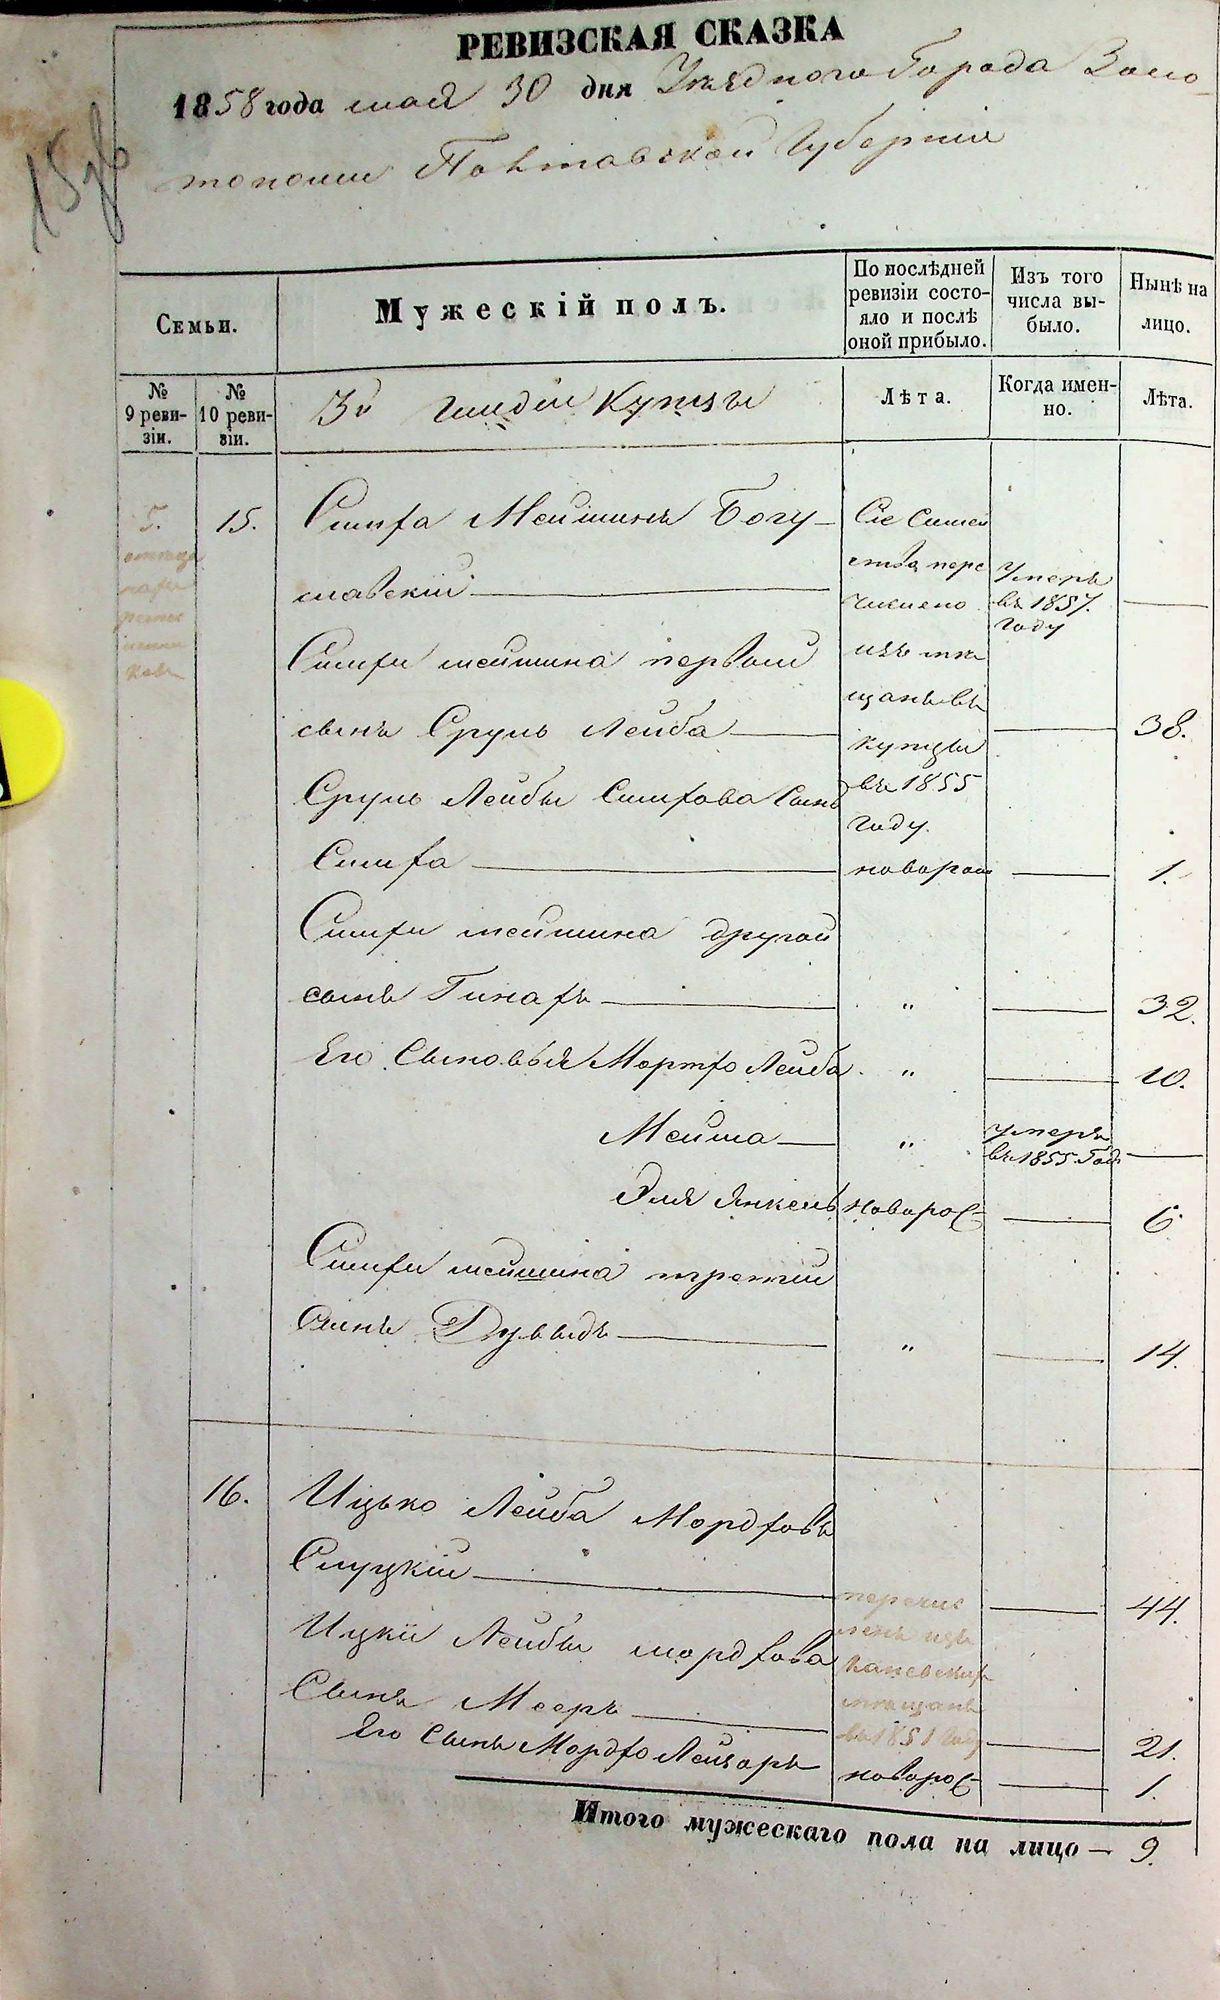 РЕВИЗСКАЯ СКАЗКА
1858 года мая 30 дня Уезднаго Города Золо-
тоноши Полтавской Губернии
Семьи.
Мужескiй полъ.
По послѣдней ревизiи состо-яло и послѣ оной прибыло.
Изъ того числа вы-было.
Нынѣ на лицо.
№ 9 реви-зiи.
№ 10 реви-зiи.
3й гилдiи Купцы
Лѣта.
Когда имен-но.
Лѣта.
5.
15.
Симха Мейшинъ Богу-
славскiй
Сiе Семей
ства пере
числено
изъ мѣ
щанъ въ
купцы
въ 1855
году.
Умеръ
въ 1857.
году
Симхи мейшина первый
сынъ Сруль Лейба
38.
Сруль Лейбы Симхова Сынъ
Симха
новорож
1.
Симхи мейшина другой
сынъ Гинахъ
"
32.
Его Сыновья Мортхо Лейба
"
10.
Мейша
"
умеръ
въ 1855 Год
Эля Янкель
новорож
6
Симхи мейшина третiй
Сынъ Дувыдъ
"
14.
16.
Ицько Лейба Мордховъ
Слуцкiй
перечис
ленъ изъ
Каневских
мѣщанъ
въ 1851 Году
44.
Ицки Лейбы мордхова
Сынъ Мееръ
21.
Его Сынъ Мордхо Лейзоръ
новорож
1.
Итого мужескаго пола на лицо — 9.